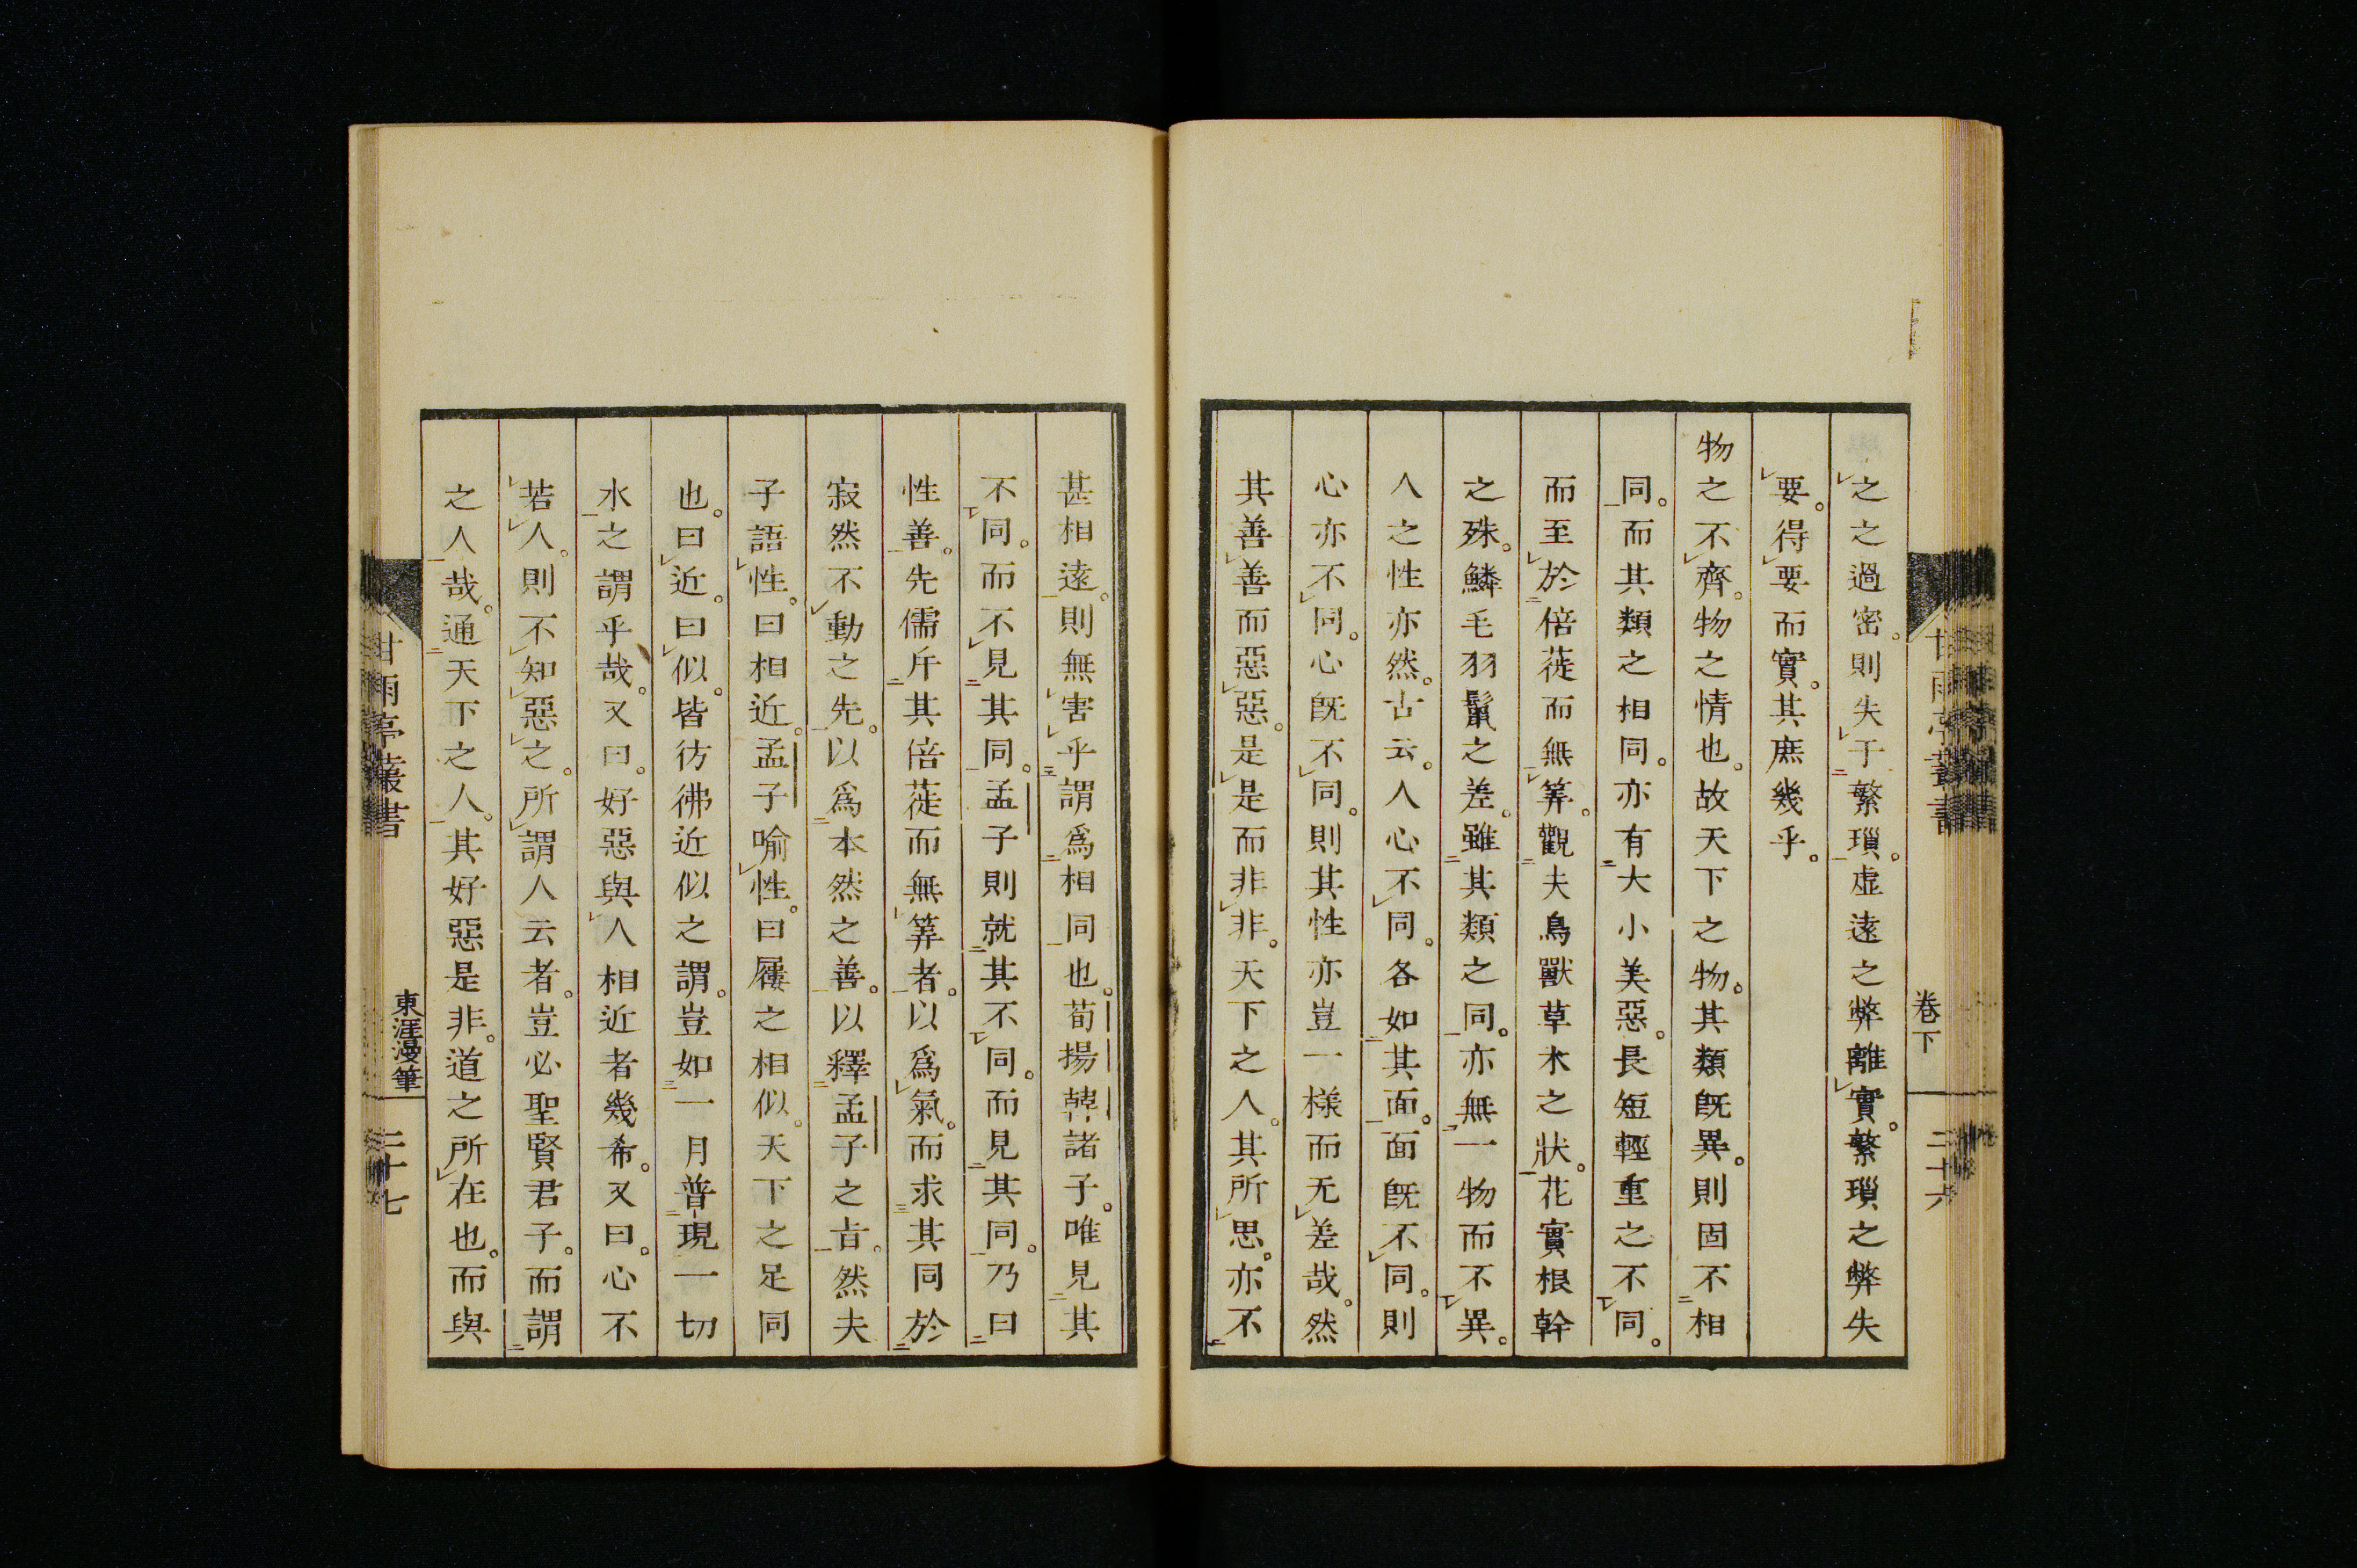 之之過密。則失于繁瑣。虛遠之弊離實。繁瑣之弊失
要。得要而實。其庶幾乎。
物之不齊。物之情也。故天下之物。其類既異。則固不相
同。而其類之相同。亦有大小美惡。長短輕重之不同。
而至於倍蓰而無筭。觀夫鳥獸草木之狀。花實根幹
之殊。鱗毛羽鬣之差。雖其類之同。亦無一物而不異。
人之性亦然。古云。人心不同。各如其面。面既不同。則
心亦不同。心既不同。則其性亦豈一樣而无差哉。然
其善善而惡惡。是是而非非。天下之人。其所思。亦不
卷下
二十六
甚相遠。則無害乎謂爲相同也。荀揚韓諸子。唯見其
不同。而不見其同。孟子則就其不同。而見其同。乃曰
性善。先儒斥其倍蓰而無筭者。以爲氣。而求其同於
寂然不動之先。以爲本然之善。以釋孟子之旨。然夫
子語性。曰相近。孟子喻性。曰屨之相似。天下之足同
也。曰近。曰似。皆彷彿近似之謂。豈如一月普現一切
水之謂乎哉。又曰。好惡與人相近者幾希。又曰。心不
若人。則不知惡之。所謂人云者。豈必聖賢君子。而謂
之人哉。通天下之人。其好惡是非。道之所在也。而與
甘雨亭叢書
東涯漫筆
二十七